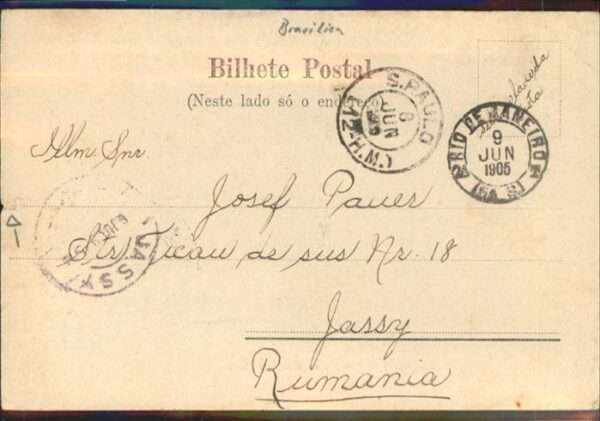 Brasilien
Bilhete Postal
(Neste lado só o endereço)
S. PAULO
8
JUN
(12-H.M.)
RIO DE JANEIRO
9
JUN
1905
(5A S)
Illm. Snr.
Josef Pauer
Str. Ticau de sus Nr. 18
JASSY
Jassy
Rumania